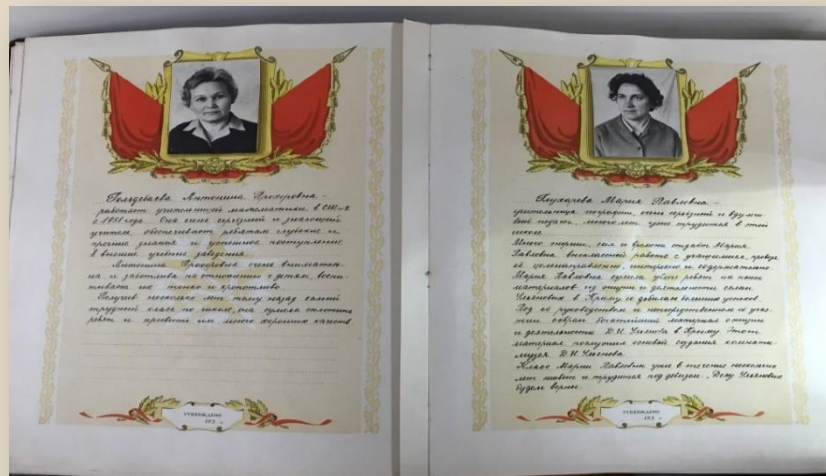 Гольдебаева Антонина Прохоровна –
работает учительницей математики в СШ-
с 1951 года. Она очень серьёзный и знающий
учитель, обеспечивает ребятам глубокие и
прочные знания и успешное поступление
в высшие учебные заведения.
Антонина Прохоровна очень вниматель-
на и заботлива по отношению к детям, воспи-
тывает их тонко и кропотливо.
Получив несколько лет тому назад самый
трудный класс по школе, она сумела сплотить
ребят и привить им много хороших качеств
УТВЕРЖДЕНО
Глухарева Мария Павловна –
учительница географии, очень серьёзный и вдумчи
вый педагог, много лет уже трудится в этой
школе.
Много энергии, сил и времени отдаёт Мария
Павловна внеклассной работе с учащимися, проводя
её целенаправленно, интересно и содержательно.
Мария Павловна сумела увлечь ребят на поиск
материалов из жизни и деятельности семьи
Ульяновых в Крыму и добилась больших успехов.
Под её руководством и непосредственном её учас-
тии собран богатейший материал о жизни
и деятельности Д.И. Ульянова в Крыму. Этот
материал послужил основой создания комнаты-
музея Д.И. Ульянова.
Класс Марии Павловны уже в течение нескольких
лет живёт и трудится под девизом: „Делу Ульяновых
будем верны.
УТВЕРЖДЕНО